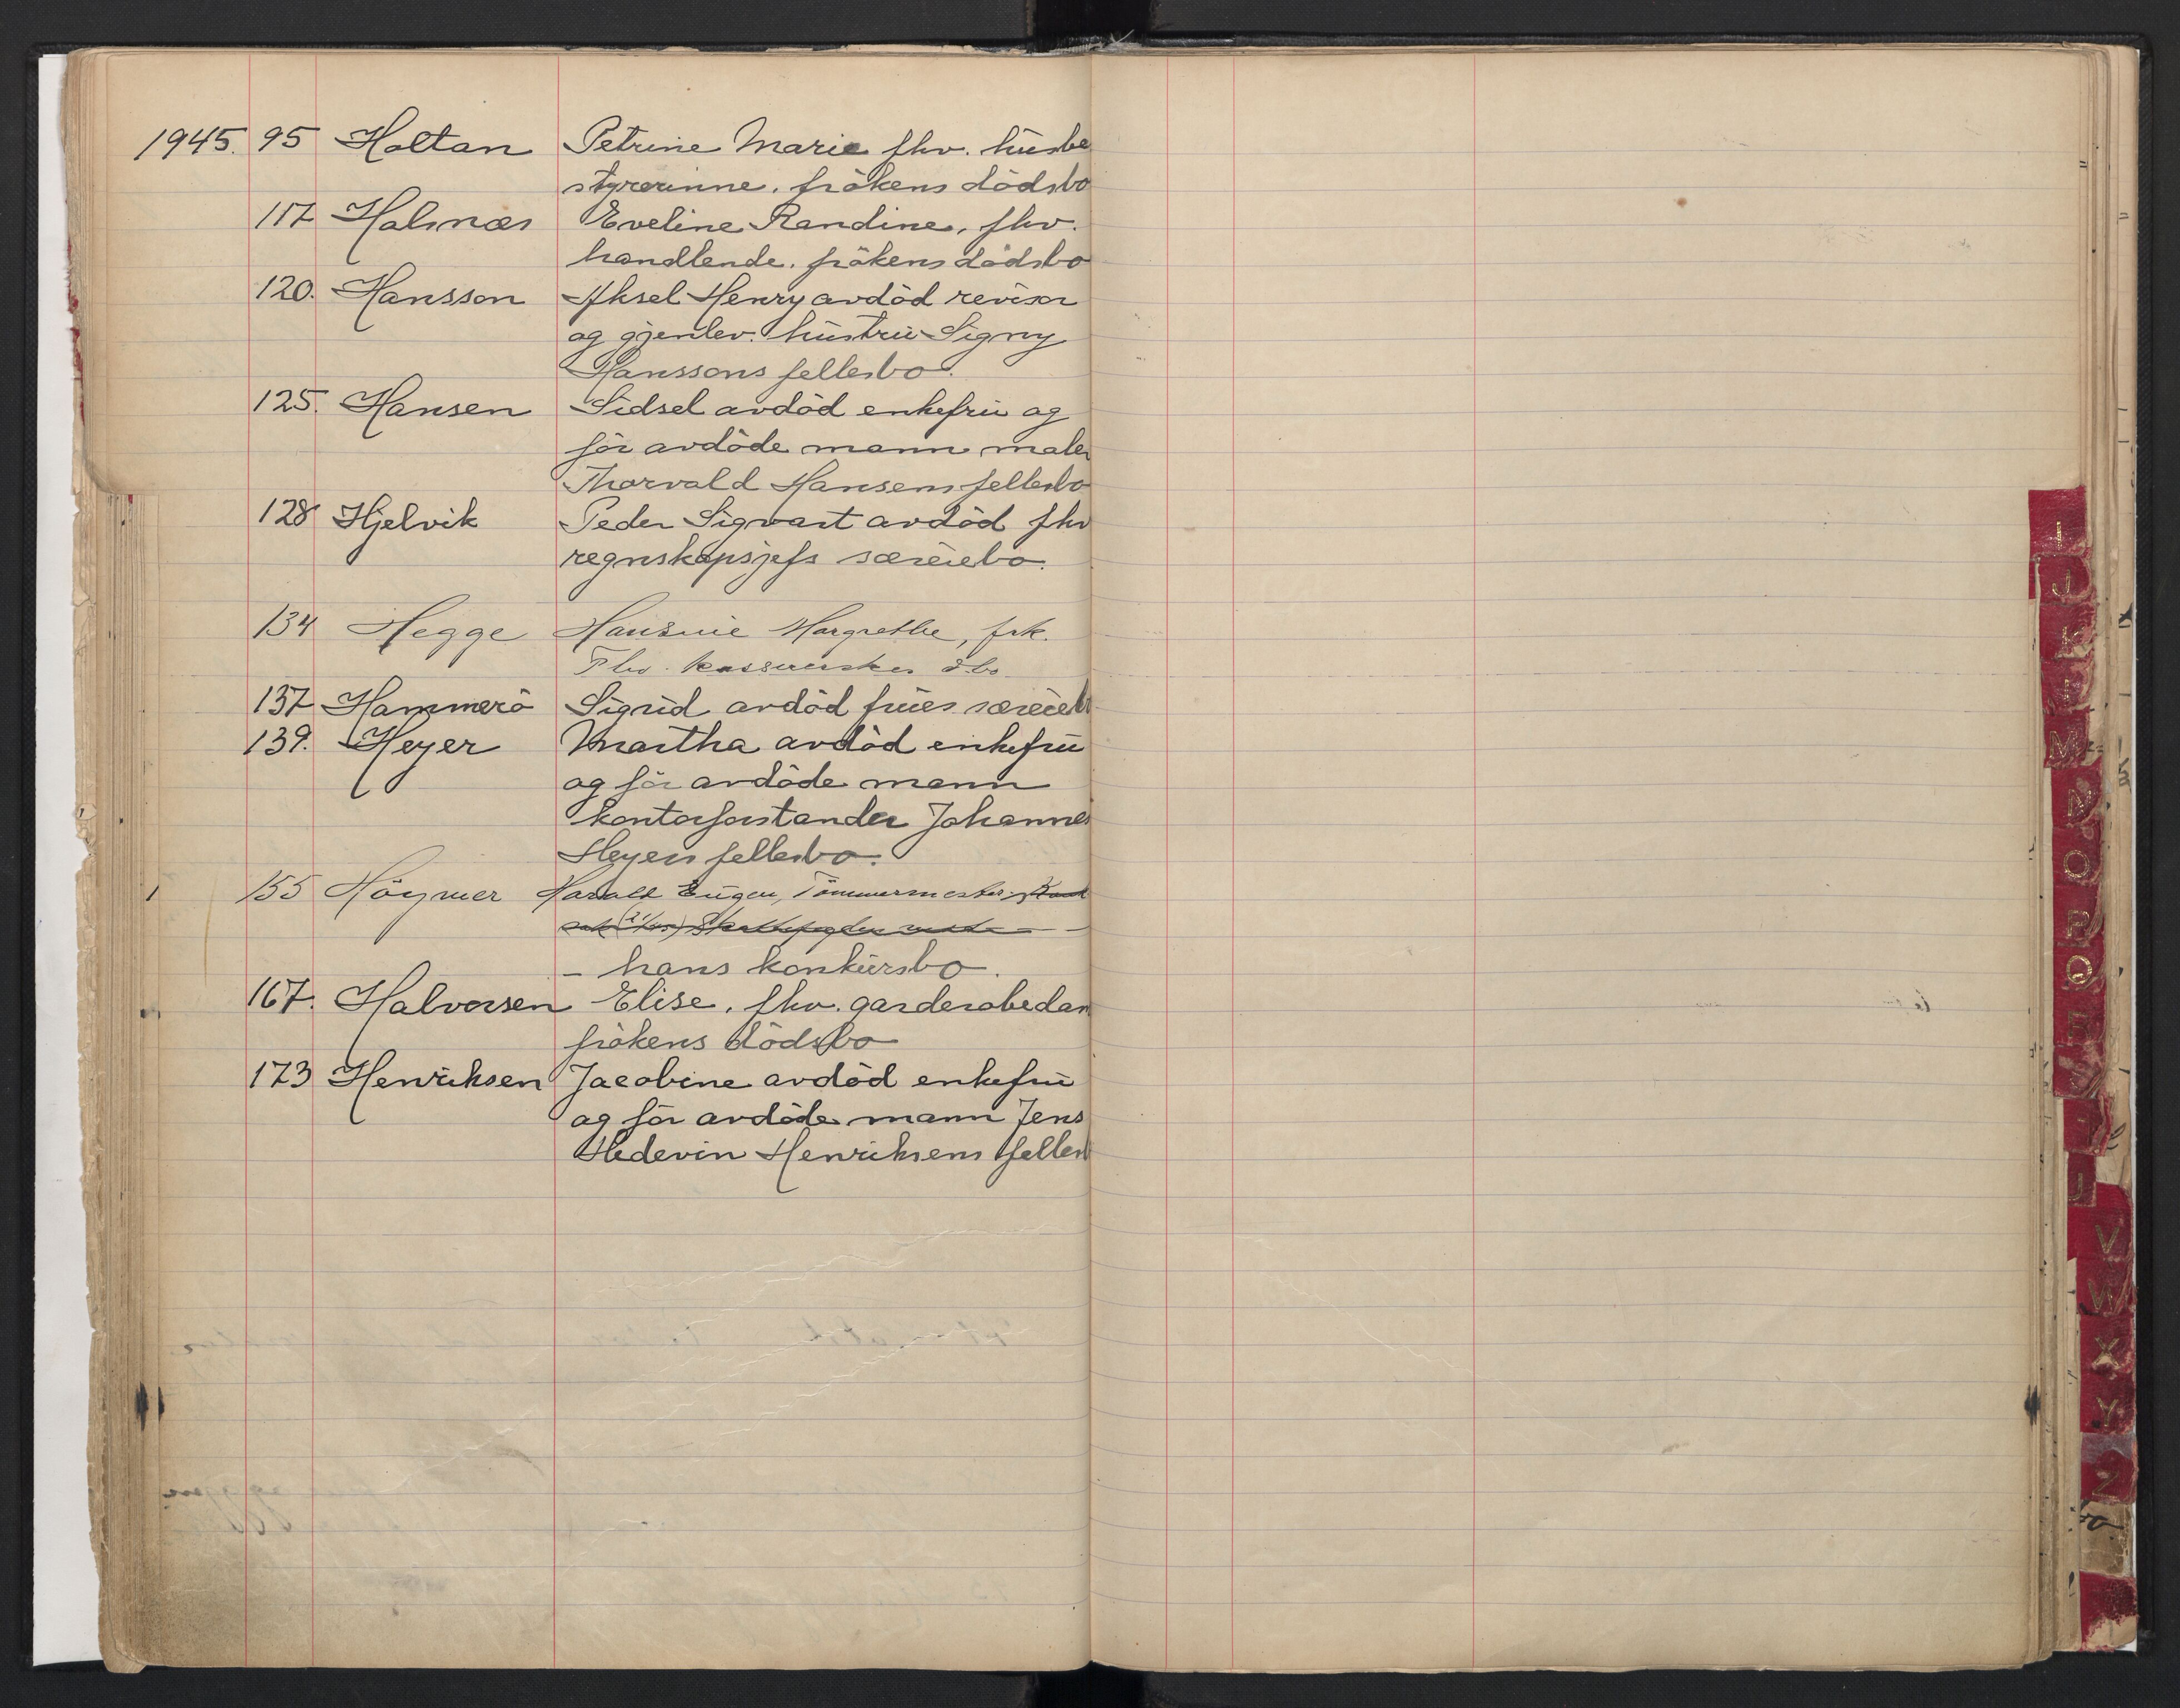 1945. 95 Holtan Petrine Marie fhv. husbe
styrerinne. frökens dödsbo
117 Halsnæs Eveline Randine, fhv.
handlende. frökens dödsbo
120. Hansson Aksel Henry avdöd revisor
og gjenlev. hustru Signy
Hanssons fellesbo.
125. Hansen Sidsel avdöd enkefru og
för avdöde mann maler
Thorvald Hansens fellesbo
128 Hjelvik Peder Sigvart avdöd fhv
regnskapsjefs særeiebo.
134 Hegge Hansine Margrethe, frk.
Fhv. kasserers dbo
137 Hammerö Sigrid avdöd frues særeiebo
139. Heyer Martha avdöd enkefru
og för avdöde mann
kontorforstander Johannes
Heyers fellesbo.
155 Höymer Harald Eugen, Tömmermester
– hans konkursbo.
167. Halvorsen Elise. fhv. garderobedam
frökens dödsbo
173 Henriksen Jacobine avdöd enkefru
og för avdöde mann Jens
Hedevin Henriksens fellesb
I
J
K
L
M
N
O
P
Q
R
S
T
U
V
W
X
Y
Z